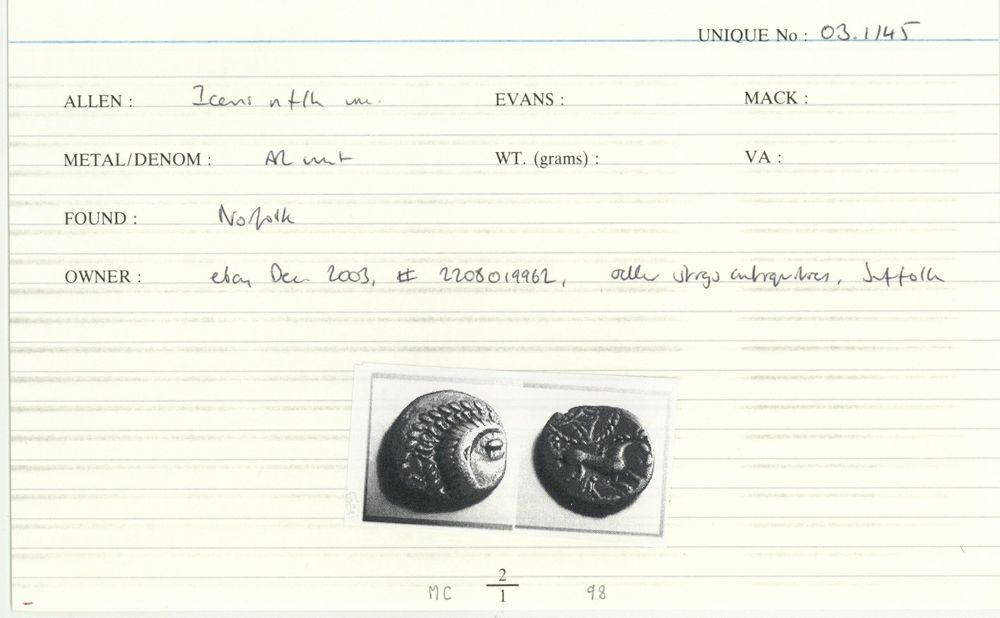 UNIQUE No : 03.1145
ALLEN : Iceni EVANS : MACK :
METAL/DENOM : AR unit WT. (grams) : VA :
FOUND : Norfolk
OWNER : ebay Dec 2003, # 2208019962, antiquities, Suffolk
MC 2/1 98